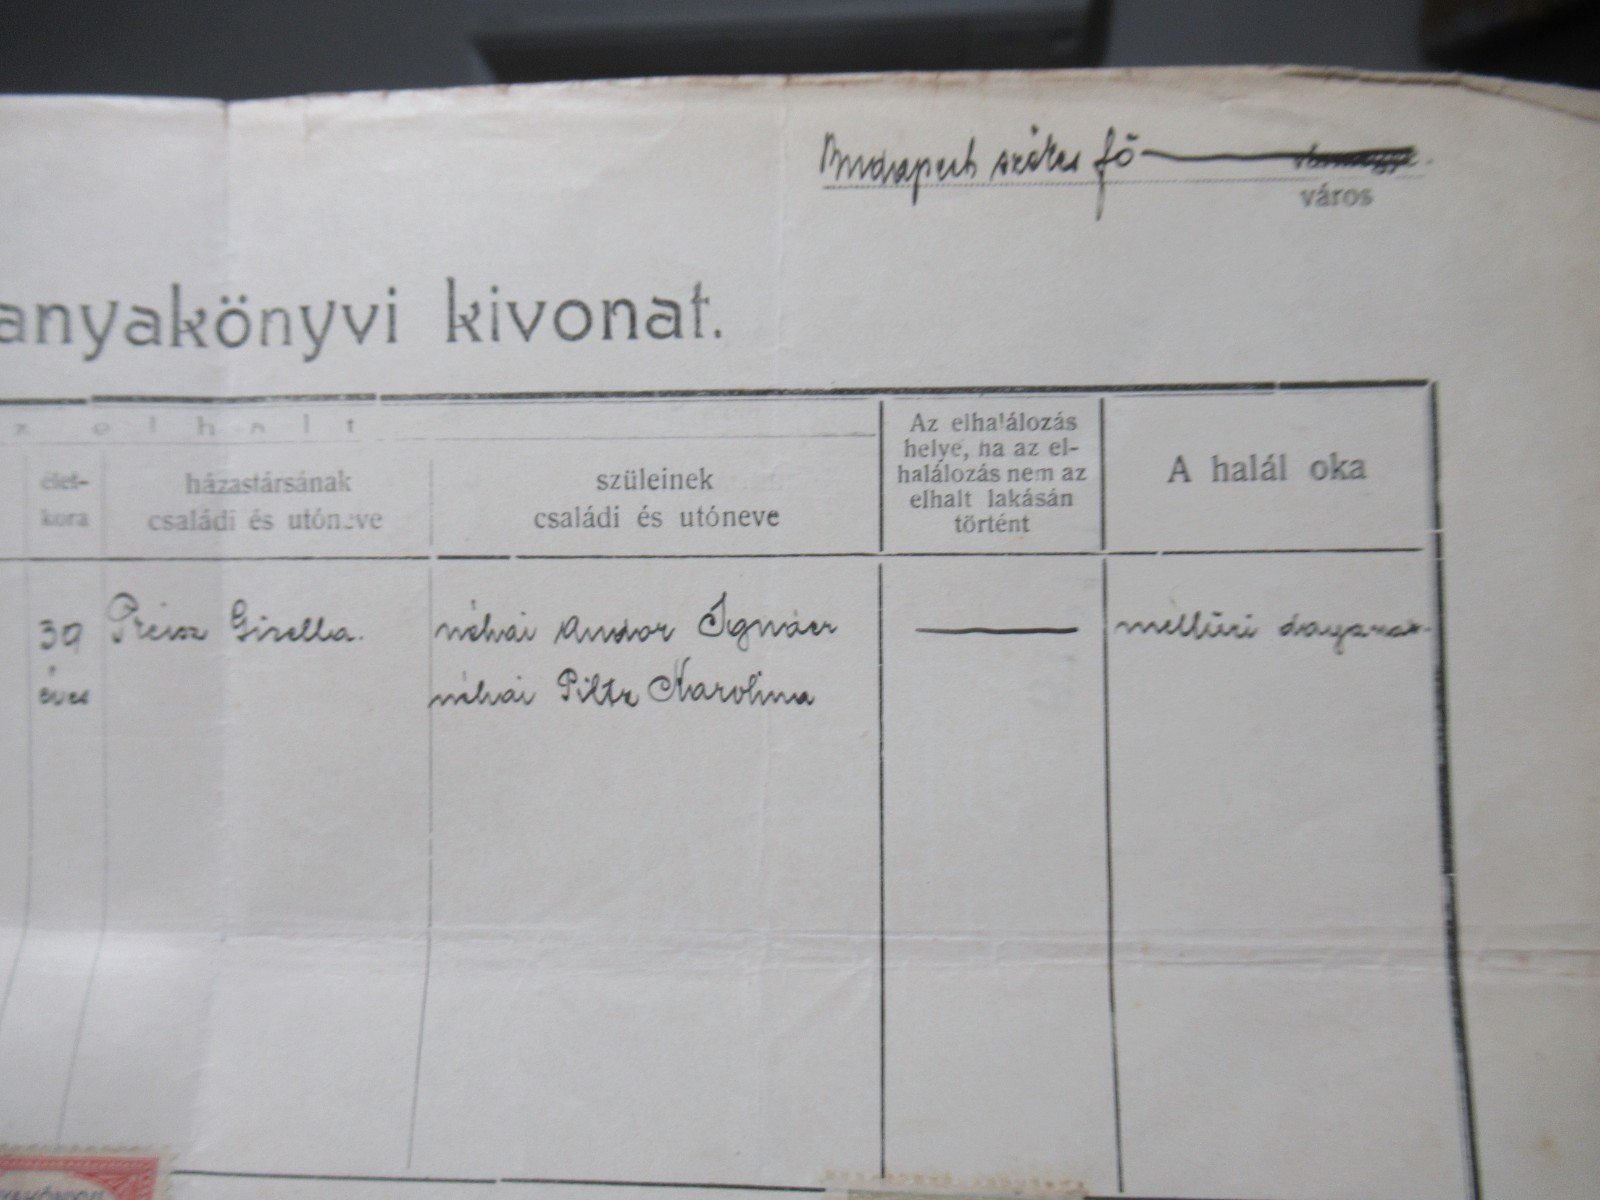 Budapest székes fő
város
anyakönyvi kivonat.
z elhalt
élet-
kora
házastársának
családi és utóneve
szüleinek
családi és utóneve
Az elhalálozás
helye, ha az el-
halálozás nem az
elhalt lakásán
történt
A halál oka
39
éves
Preisz Gizella.
néhai Andor Ignácz
néhai Piltz Karolina
mellűri daganat